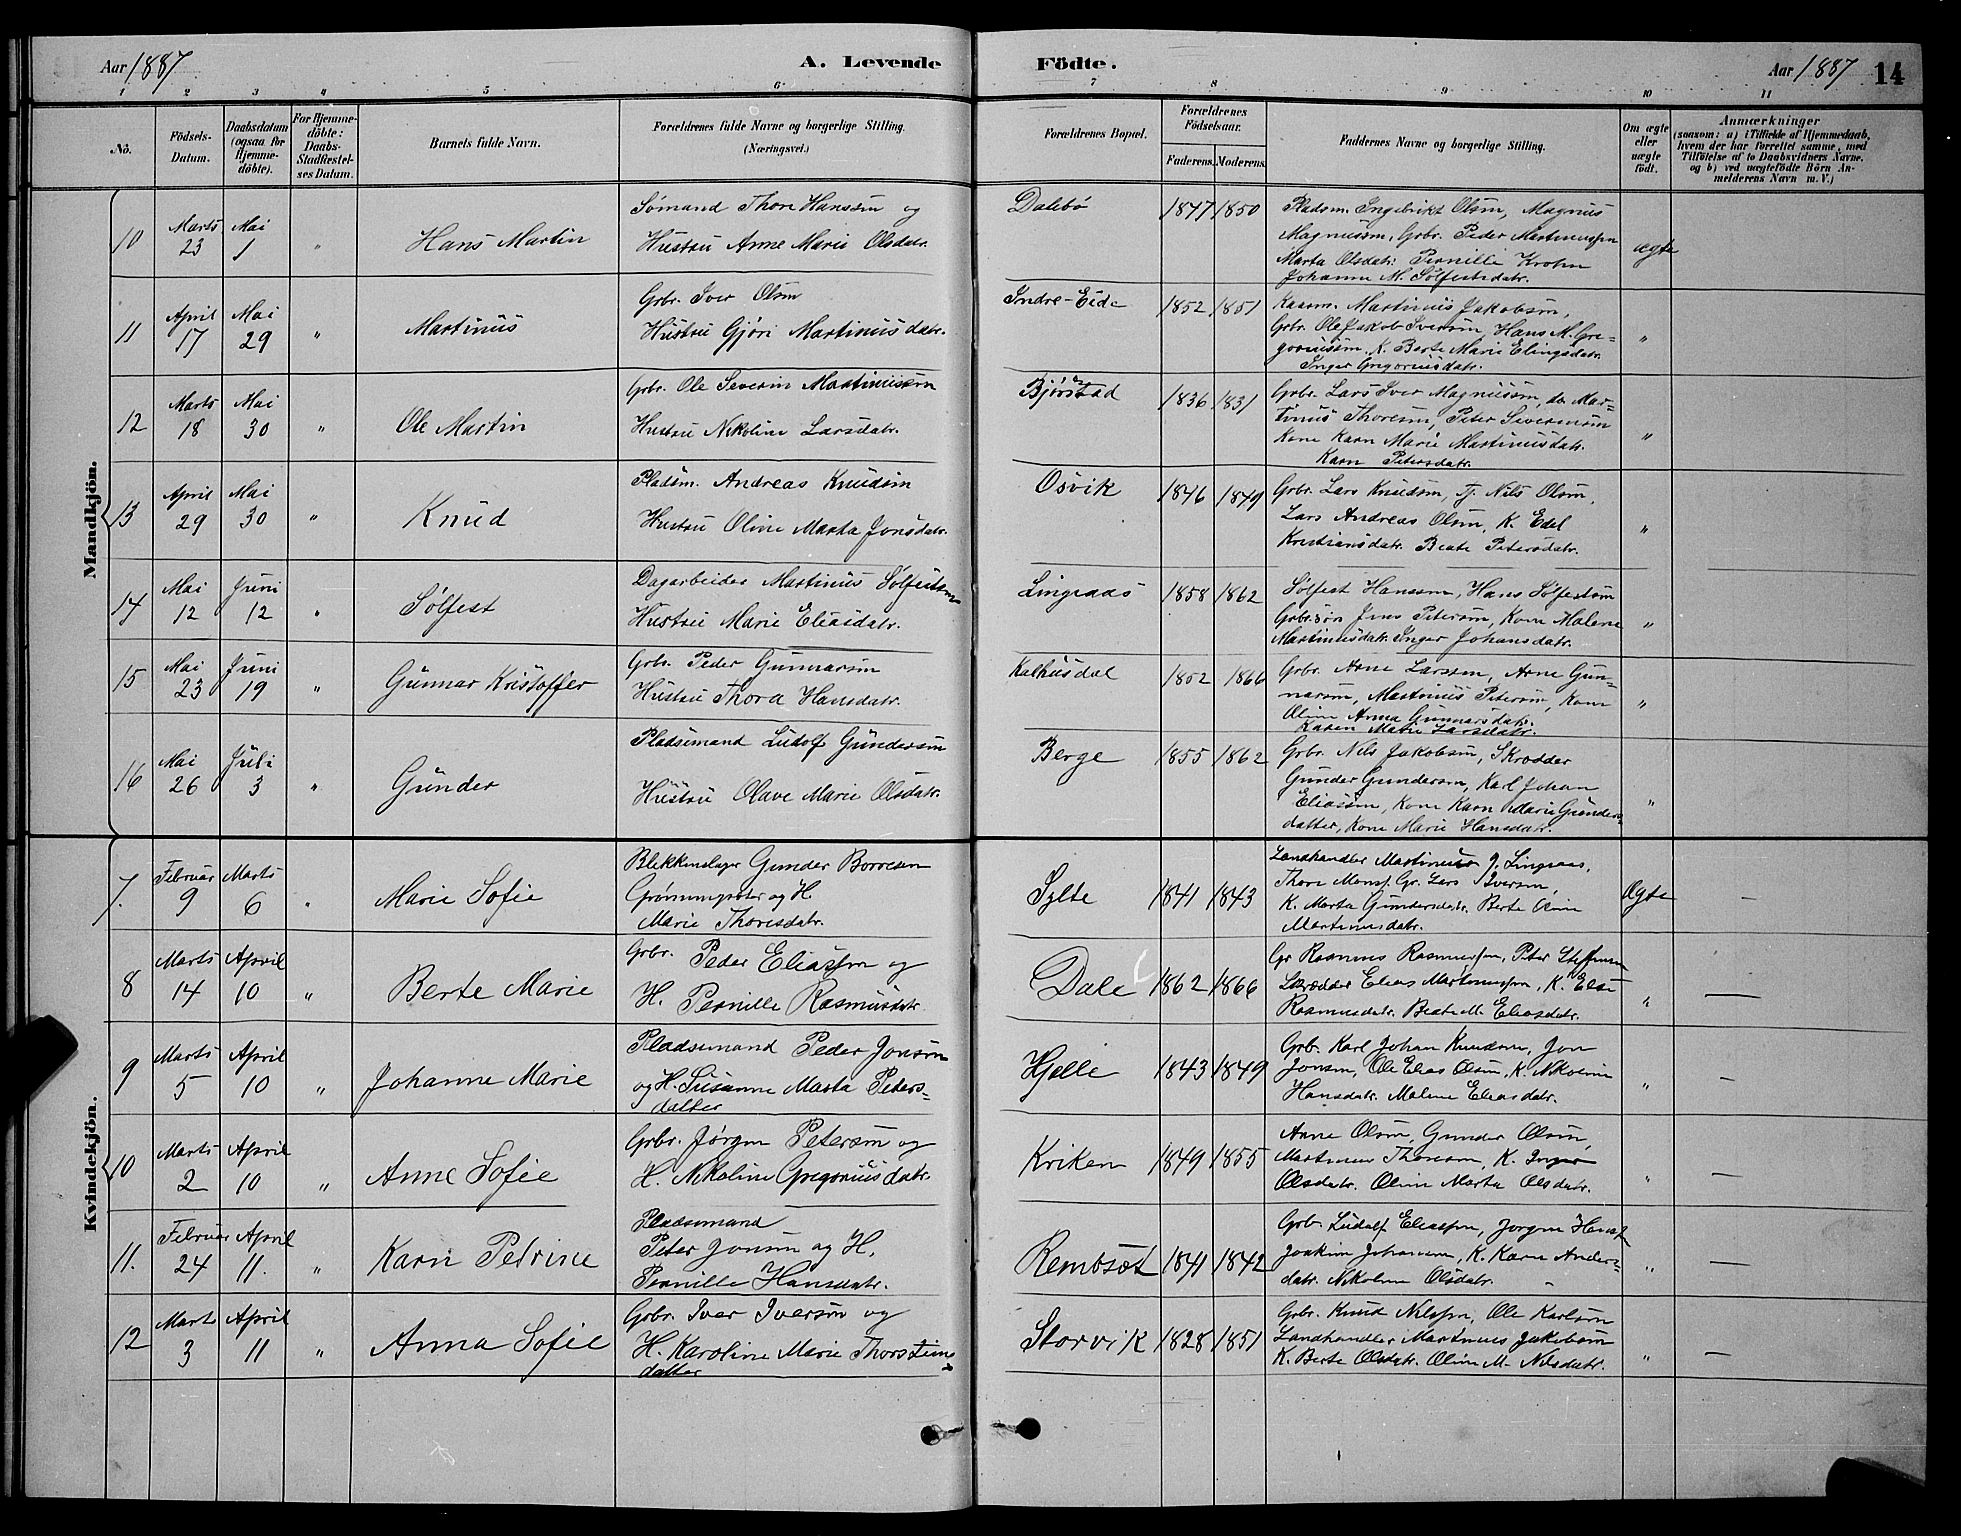 Aar 1887 A. Levende Födte. Aar 1887 14
1 2 3 4 5 6 7 8 9 10 11
No. Födsels-Datum. Daabsdatum (ogsaa for Hjemme-döbte). For Hjemme-döbte: Daabs-Stadfæstel-ses Datum. Barnets fulde Navn. Forældrenes fulde Navne og borgerlige Stilling. (Næringsvei.) Forældrenes Bopæl. Forældrenes Födselsaar. Faderens. Moderens. Faddernes Navne og borgerlige Stilling. Om ægte eller uægte födt. Anmærkninger (saasom: a) i Tilfælde af Hjemmedaab, hvem der har forrettet samme, med Tilföielse af to Daabsvidners Navne, og b) ved uægtefödte Börn An-melderens Navn m. V.)
Mandkjön.
10 Marts 23 Mai 1 " Hans Martin
Sømand Thore Hanssøn og
Hustru Anne Marie Olsdatr.
Dalebø 1847 1850
Pladsm. Ingebrikt Olsøn, Magnus
Magnussøn, Grbr. Peder Martinussøn
Marta Olsdatr. Pernille Krohn
Johanne M. Sølfestsdatr.
ægte
11 April 17 Mai 29 " Martinus
Grbr. Iver Olsøn
Hustru Gjøri Martinusdatr.
Indre-Eide 1852 1851
Kaarm. Martinus Jakobsøn,
Grbr. Ole Jakob Iversøn, Hans M. Gre-
goriussøn, K. Berte Marie Elingsdatr.
Inger Gregoriusdatr.
"
12 Marts 18 Mai 30 " Ole Martin
Grbr. Ole Severin Martinussøn
Hustru Nikoline Larsdatr.
Bjørstad 1836 1831
Grbr. Lars Iver Magnussøn, do Mar-
tinus Thoresøn, Peter Severinsøn
Kone Karn Marie Martinusdatr.
Karn Petersdatr.
"
13 April 29 Mai 30 " Knud
Pladsm. Andreas Knudsøn
Hustru Oline Marta Jonsdatr.
Osvik 1846 1849
Grbr. Lars Knudsøn, Tj. Nils Olsøn,
Lars Andreas Olsøn, K. Edel
Kristiansdatr. Beate Petersdatr.
"
14 Mai 12 Juni 12 " Sølfest
Dagarbeider Martinus Sølfestsøn
Hustru Marie Eliasdatr.
Lingaas 1858 1862
Sølfest Hanssøn, Hans Sølfestsøn
Grbr.søn Jens Petersøn, Kone Malene
Martinusdatr. Inger Johansdatr.
"
15 Mai 23 Juni 19 " Gunnar Kristoffer
Grbr. Peder Gunnarsøn
Hustru Thora Hansdatr.
Kalhusdal 1852 1866
Grbr. Arne Larssøn, Arne Gun-
narsøn, Martinus Petersøn, Kone
Oline Anna Gunnarsdatr.
Karen Marie Larsdatr.
"
16 Mai 26 Juli 3 " Gunder
Pladsemand Ludolf Gundersøn
Hustru Olave Marie Olsdatr.
Berge 1855 1862
Grbr. Nils Jakobsøn, Skrædder
Gunder Gundersøn, Karl Johan
Eliassøn, Kone Karn Marie Gunders-
datter, Kone Marie Hansdatr.
"
Kvindekjön.
7. Februar 9 Marts 6 " Marie Sofie
Blikkenslager Gunder Borresen
og H.
Marie Thoresdatr.
Sylte 1841 1843
Landhandler Martinus J. Lingaas,
Thore Monsf. Gr. Lars Iversøn,
K. Marta Gundersdatr. Berte Oline
Martinusdatr.
Ægte —
8 Marts 14 April 10 " Berte Marie
Grbr. Peder Eliassøn og
H. Pernille Rasmusdatr.
Dale 1862 1866
Gr Rasmus Rasmussøn, Peter Steffensøn
Skrædder Elias Martinussøn, K. Else
Rasmusdatr. Beate M. Eliasdatr.
" —
9 Marts 5 April 10 " Johanne Marie
Pladsemand Peder Jonsøn
og H. Susanne Marta Peters-
datter
Hjelle 1843 1849
Grb. Karl Johan Knudsøn, Jon
Jonsøn, Ole Elias Olsøn, K. Nikoline
Hansdatr. Malene Eliasdatr.
" —
10 Marts 2 April 10 " Anne Sofie
Grbr. Jørgen Petersøn og
H. Nikoline Gregoriusdatr.
Kriken 1849 1855
Arne Olsøn, Gunder Olsøn,
Martinus Thoresøn, K. Inger
Olsdatr. Oline Marta Olsdatr.
" —
11. Februar 24 April 11. " Karn Petrine
Pladsemand
Peter Jonsøn og H.
Pernille Hansdatr.
Rembsøt 1841 1842
Grb. Ludolf Eliassøn, Jørgen Hansf
Joakim Johansøn, K. Karn Anders-
datr. Nikoline Olsdatr.
" —
12 Marts 3 April 11 " Anna Sofie
Grbr. Iver Iversøn og
H. Karoline Marie Thorsteins-
datter
Storvik 1828 1851
Grbr. Knud Nilssøn, Ole Karlsøn
Landhandler Martinus Jakobsøn
K. Berte Olsdatr. Oline M. Nilsdatr.
" —